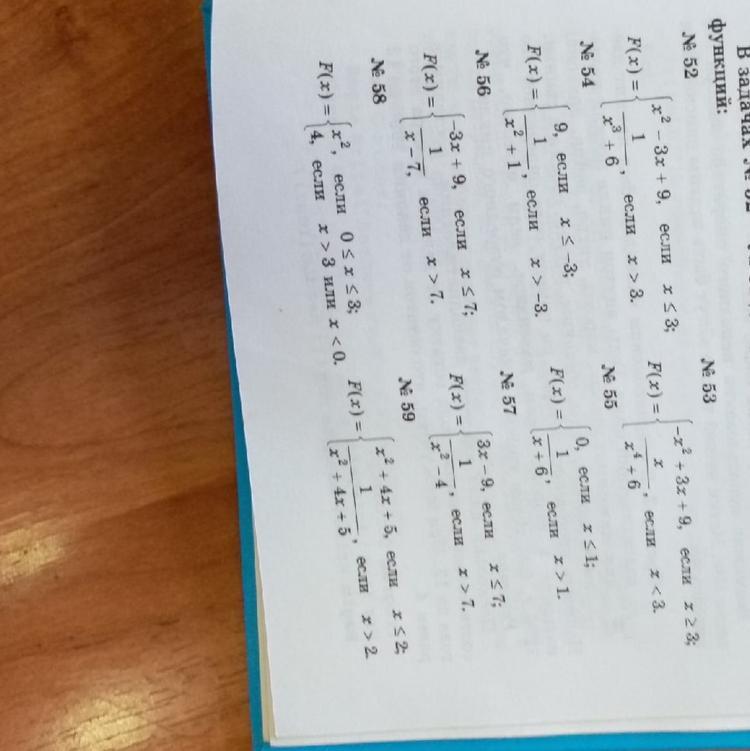 В задачах №
функций:
№ 52
F(x) = { x² − 3x + 9, если x ≤ 3;
1/(x³ + 6), если x > 3.
№ 53
F(x) = { −x² + 3x + 9, если x ≥ 3;
x/(x⁴ + 6), если x < 3.
№ 54
F(x) = { 9, если x ≤ −3;
1/(x² + 1), если x > −3.
№ 55
F(x) = { 0, если x ≤ 1;
1/(x + 6), если x > 1.
№ 56
F(x) = { −3x + 9, если x ≤ 7;
1/(x − 7), если x > 7.
№ 57
F(x) = { 3x − 9, если x ≤ 7;
1/(x² − 4), если x > 7.
№ 58
F(x) = { x², если 0 ≤ x ≤ 3;
4, если x > 3 или x < 0.
№ 59
F(x) = { x² + 4x + 5, если x ≤ 2;
1/(x² + 4x + 5), если x > 2.